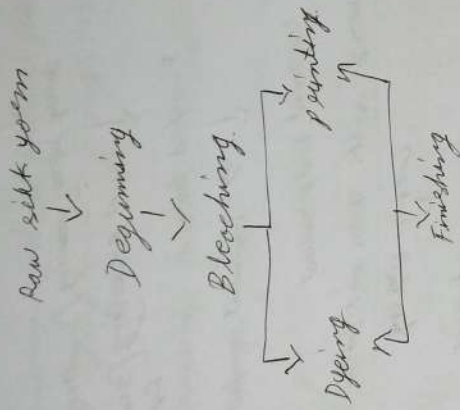 Raw silk yarn
Degumming
Bleaching
Dyeing
Printing
Finishing